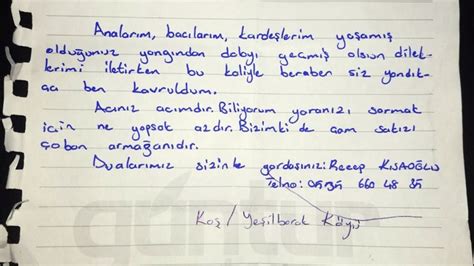 Analarım, bacılarım, kardeşlerim yaşamış
olduğunuz yangından dolayı geçmiş olsun dilek-
lerimi iletirken bu koliyle beraber siz yandık-
ça ben kavruldum.
Acınız acımdır. Biliyorum yaranızı sarmak
için ne yapsak azdır. Bizimki de çam sakızı
çoban armağanıdır.
Dualarımız sizinle gardaşınız: Recep KISAOĞLU
Telno: 0535 660 48 35
Kaş / Yeşilbarak Köyü